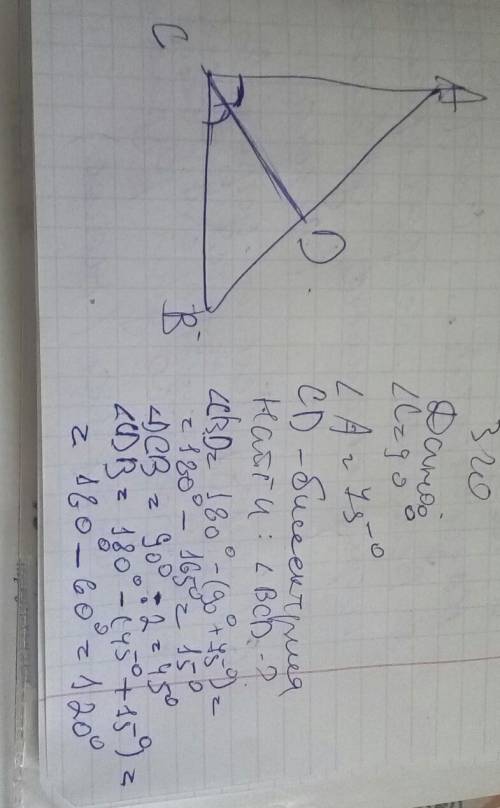 320
Дано:
∠C=90°
∠A=75°
CD - биссектриса
Найти: ∠BCD - ?
∠CBD = 180° - (90° + 75°) =
= 180° - 165° = 15°
∠DCB = 90° : 2 = 45°
∠CDB = 180° - (45° + 15°) =
= 180 - 60° = 120°
A
C
D
B